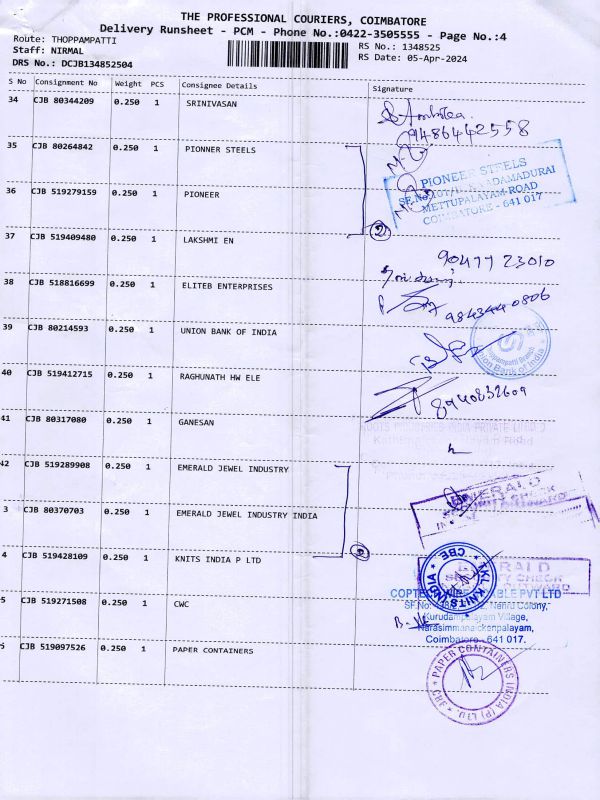 THE PROFESSIONAL COURIERS, COIMBATORE
Delivery Runsheet - PCM - Phone No.:0422-3505555 - Page No.:4
Route: THOPPAMPATTI
Staff: NIRMAL
DRS No.: DCJB134852504
RS No.: 1348525
RS Date: 05-Apr-2024
S No Consignment No Weight PCS Consignee Details Signature
34 CJB 80344209 0.250 1 SRINIVASAN
9486442558
35 CJB 80264842 0.250 1 PIONNER STEELS
36 CJB 519279159 0.250 1 PIONEER
PIONEER STEELS
METTUPALAYAM ROAD
COIMBATORE - 641 017
2
37 CJB 519409480 0.250 1 LAKSHMI EN
90477 23010
38 CJB 518816699 0.250 1 ELITEB ENTERPRISES
9843440806
39 CJB 80214593 0.250 1 UNION BANK OF INDIA
Union Bank of India
40 CJB 519412715 0.250 1 RAGHUNATH HW ELE
8940832609
41 CJB 80317080 0.250 1 GANESAN
42 CJB 519289908 0.250 1 EMERALD JEWEL INDUSTRY
3 CJB 80370703 0.250 1 EMERALD JEWEL INDUSTRY INDIA
4 CJB 519428109 0.250 1 KNITS INDIA P LTD
TKL KNITS INDIA CBE
5 CJB 519271508 0.250 1 CWC
Kurudampalayam Village,
Narasimmanaickenpalayam,
Coimbatore - 641 017.
CJB 519097526 0.250 1 PAPER CONTAINERS
PAPER CONTAINERS INDIA (P) LTD. * CBE *